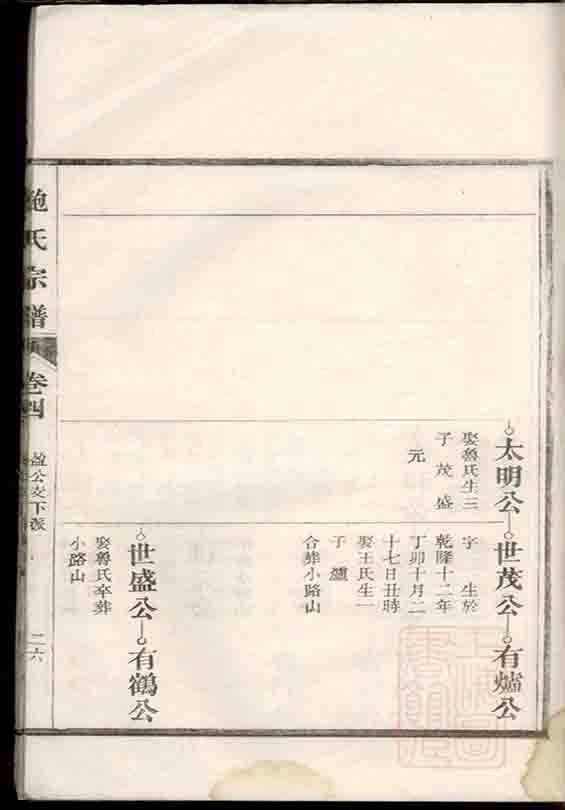 太明公
娶魯氏生三
子茂盛
元
世茂公
字 生於
乾隆十二年
丁卯十月二
十七日丑時
娶王氏生一
子爐
合葬小路山
有爐公
世盛公
娶魯氏卒葬
小路山
有鶴公
鮑氏宗譜
卷四
盈公支下派
二六